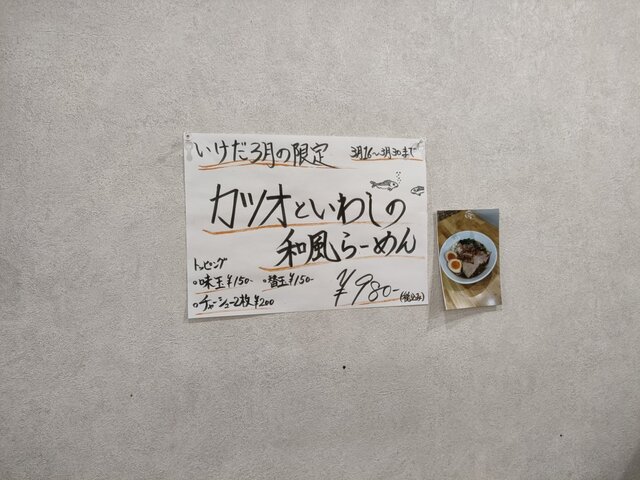 いけだ3月の限定
3月16〜3月30まで
カツオといわしの
和風らーめん
トッピング
○味玉¥150- ○替玉¥150-
○チャーシュー2枚¥200
¥980-(税込み)